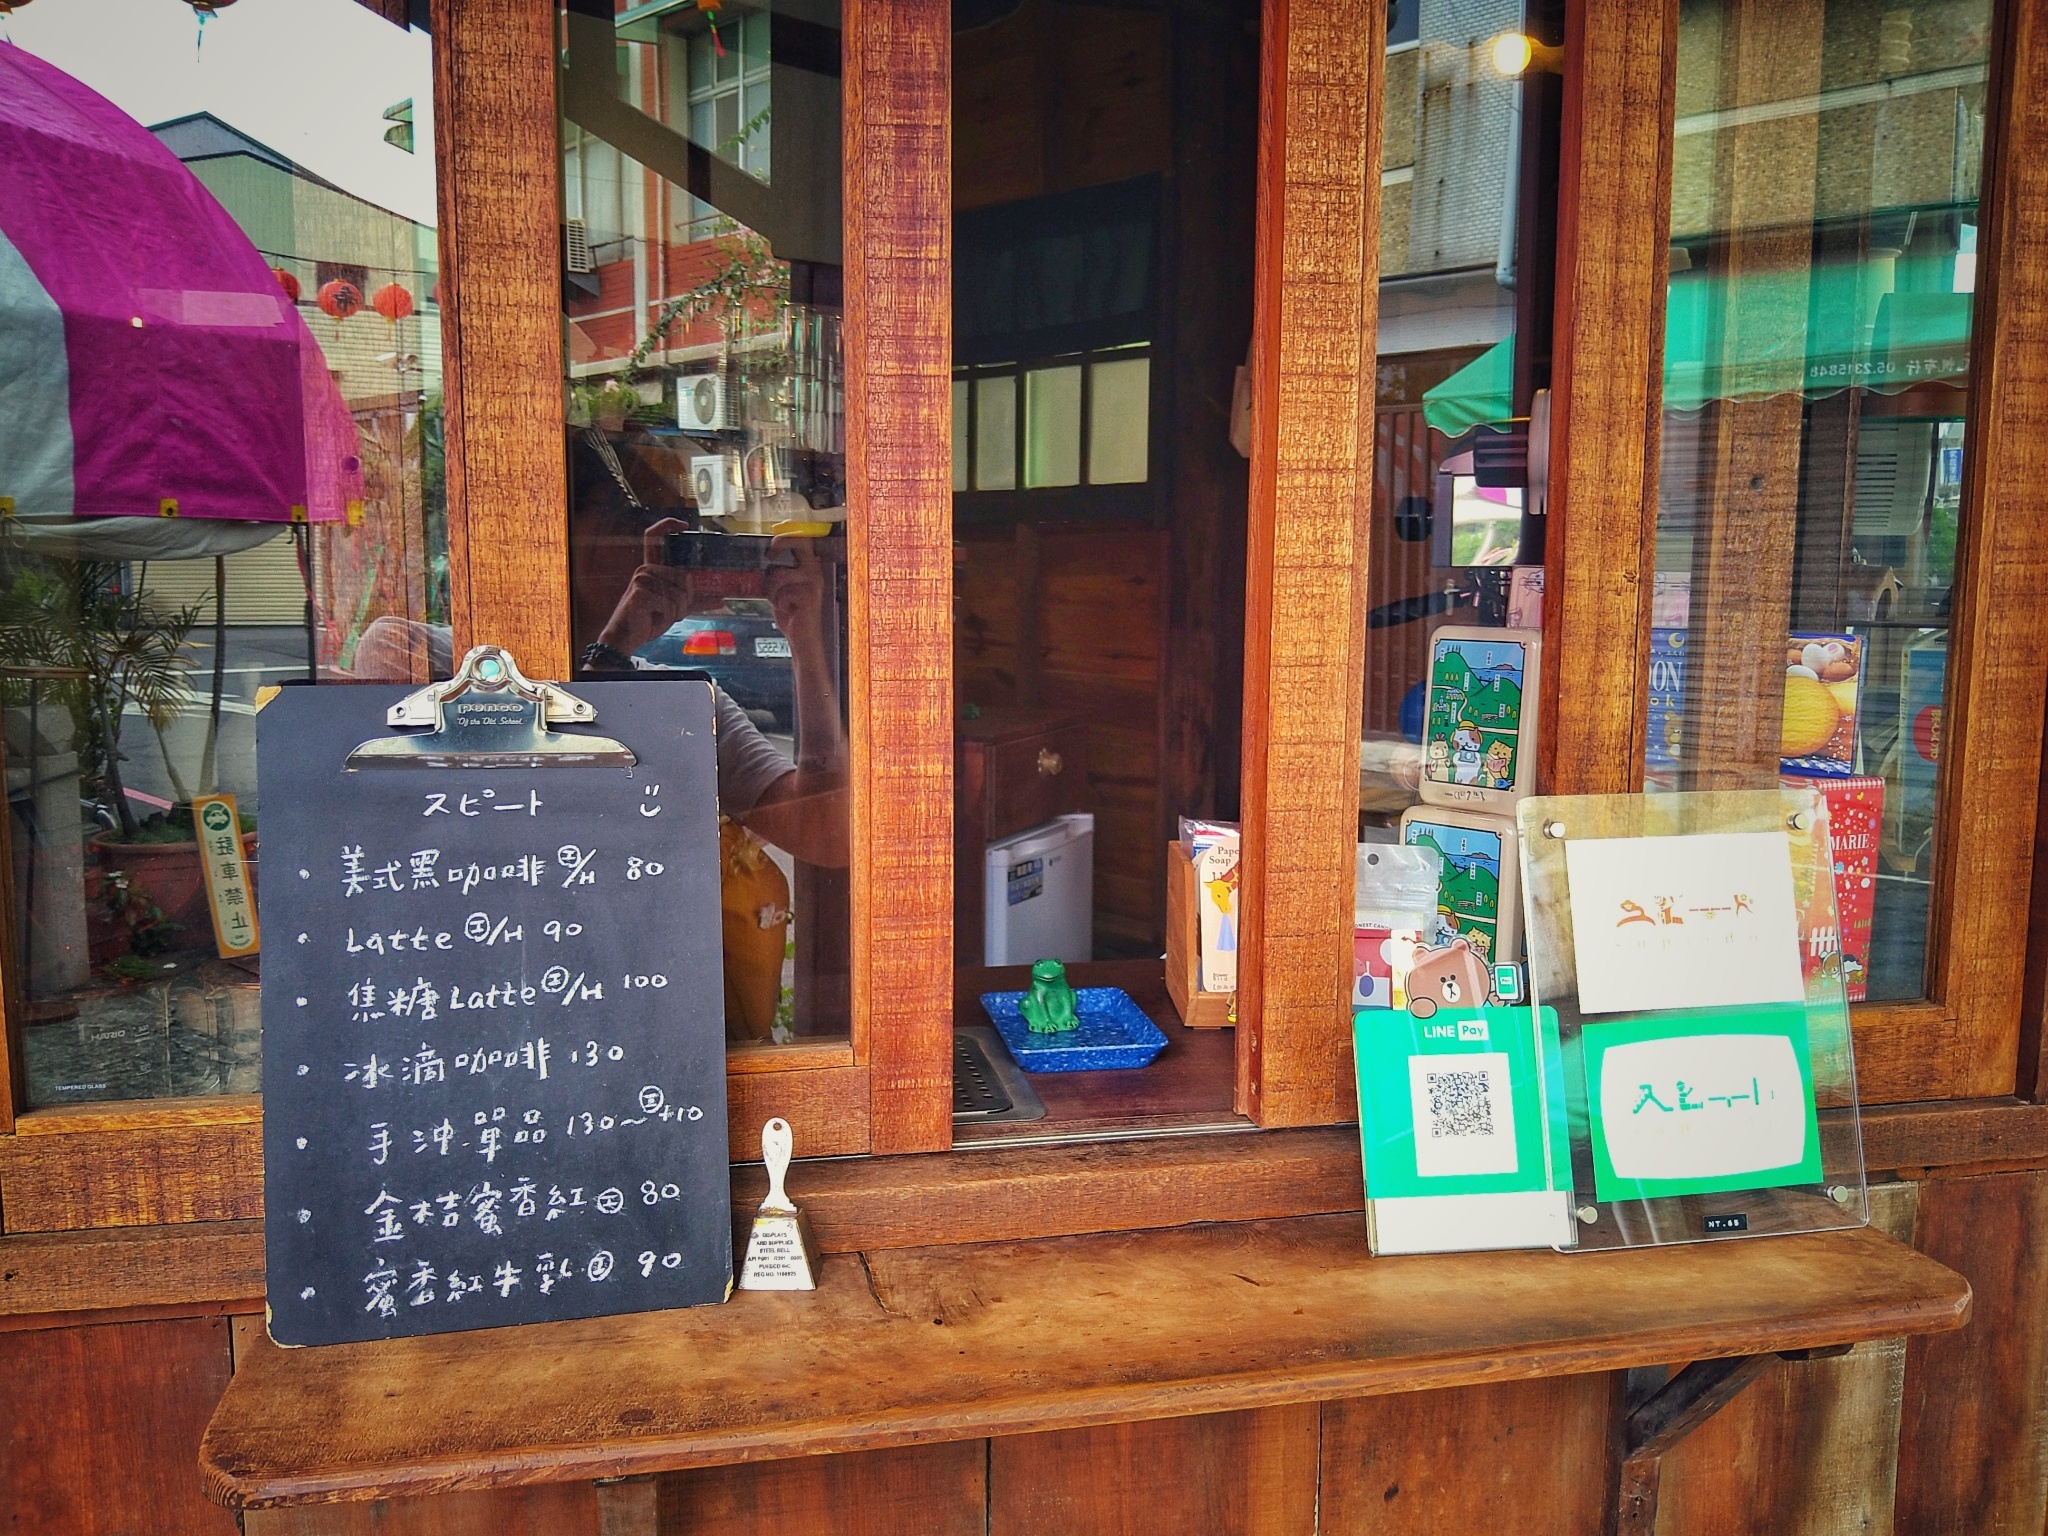 penco
"Of the Old School"
スピート
美式黑咖啡 I/H 80
Latte I/H 90
焦糖 Latte I/H 100
冰滴咖啡 130
手沖單品 130~ I+10
金桔蜜香紅 I 80
蜜香紅牛乳 I 90
DISPLAYS
AND SUPPLIES
STEEL BELL
PENCO INC
LINE Pay
NT.65
Paper
Soap
MARIE
駐車禁止
HARIO
TEMPERED GLASS
05.2315848